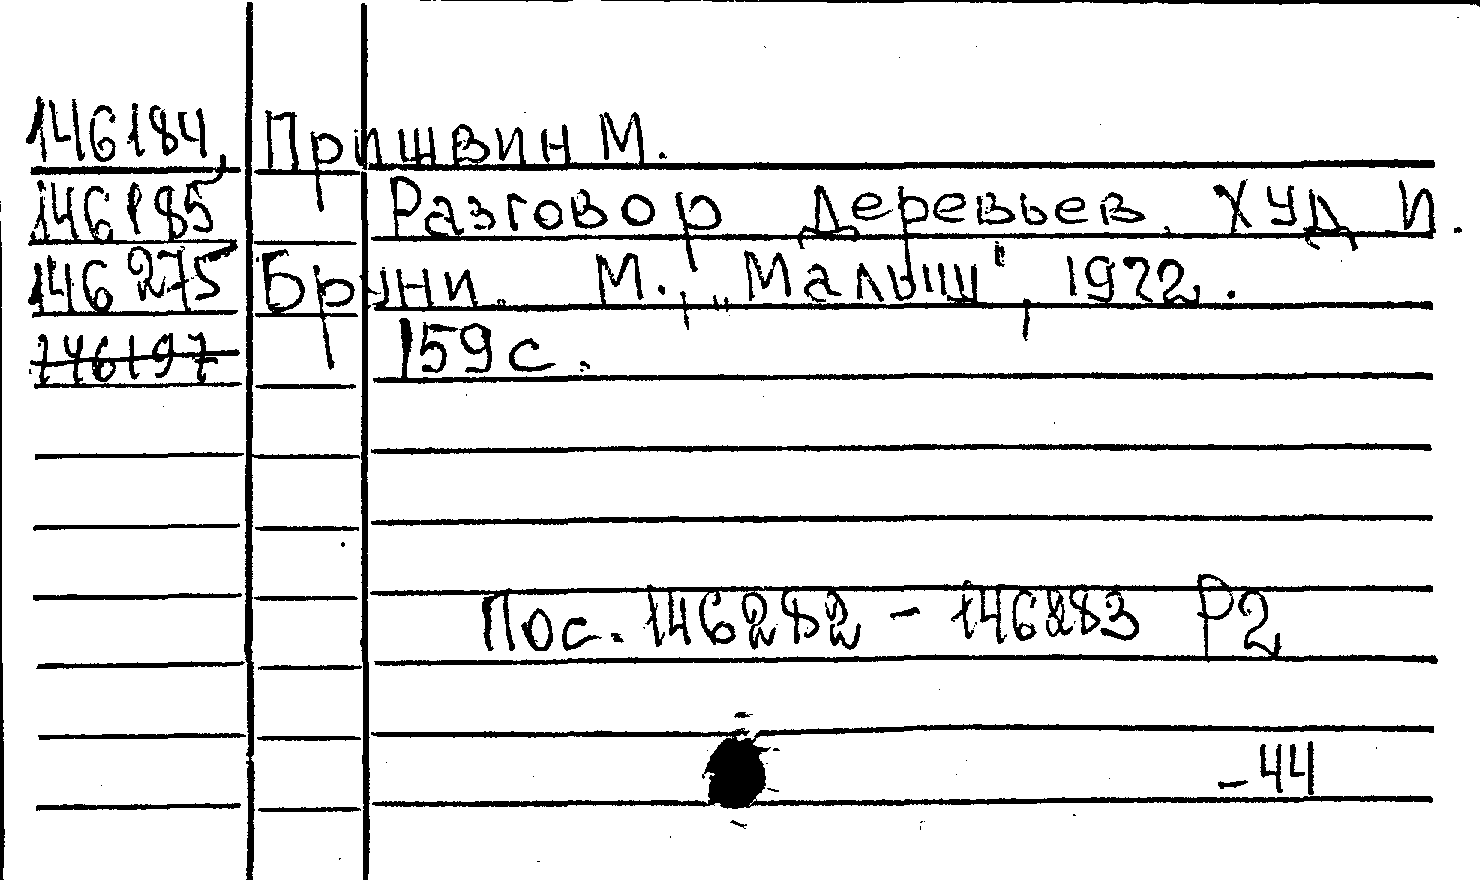 146184, Пришвин М.
146185 Разговор деревьев. Худ И.
146275 Бруни. М., „Малыш", 1972.
146197 159 с.
Пос. 146282 - 146283 Р2
-44